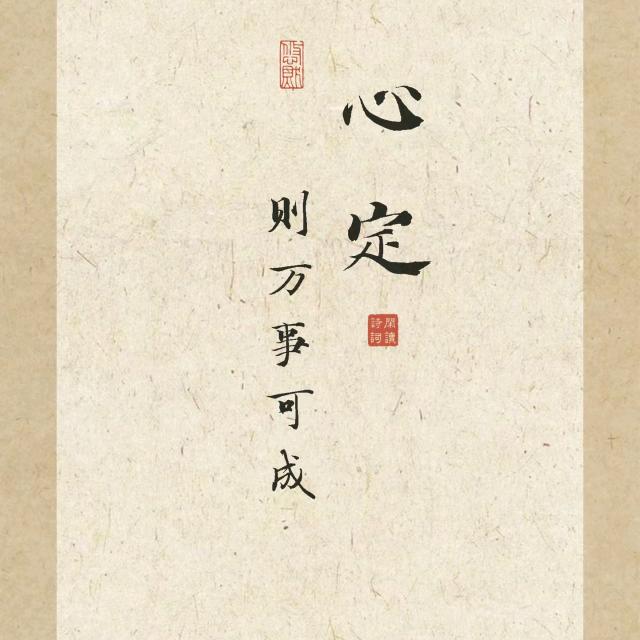 心定
则万事可成
閑讀詩詞